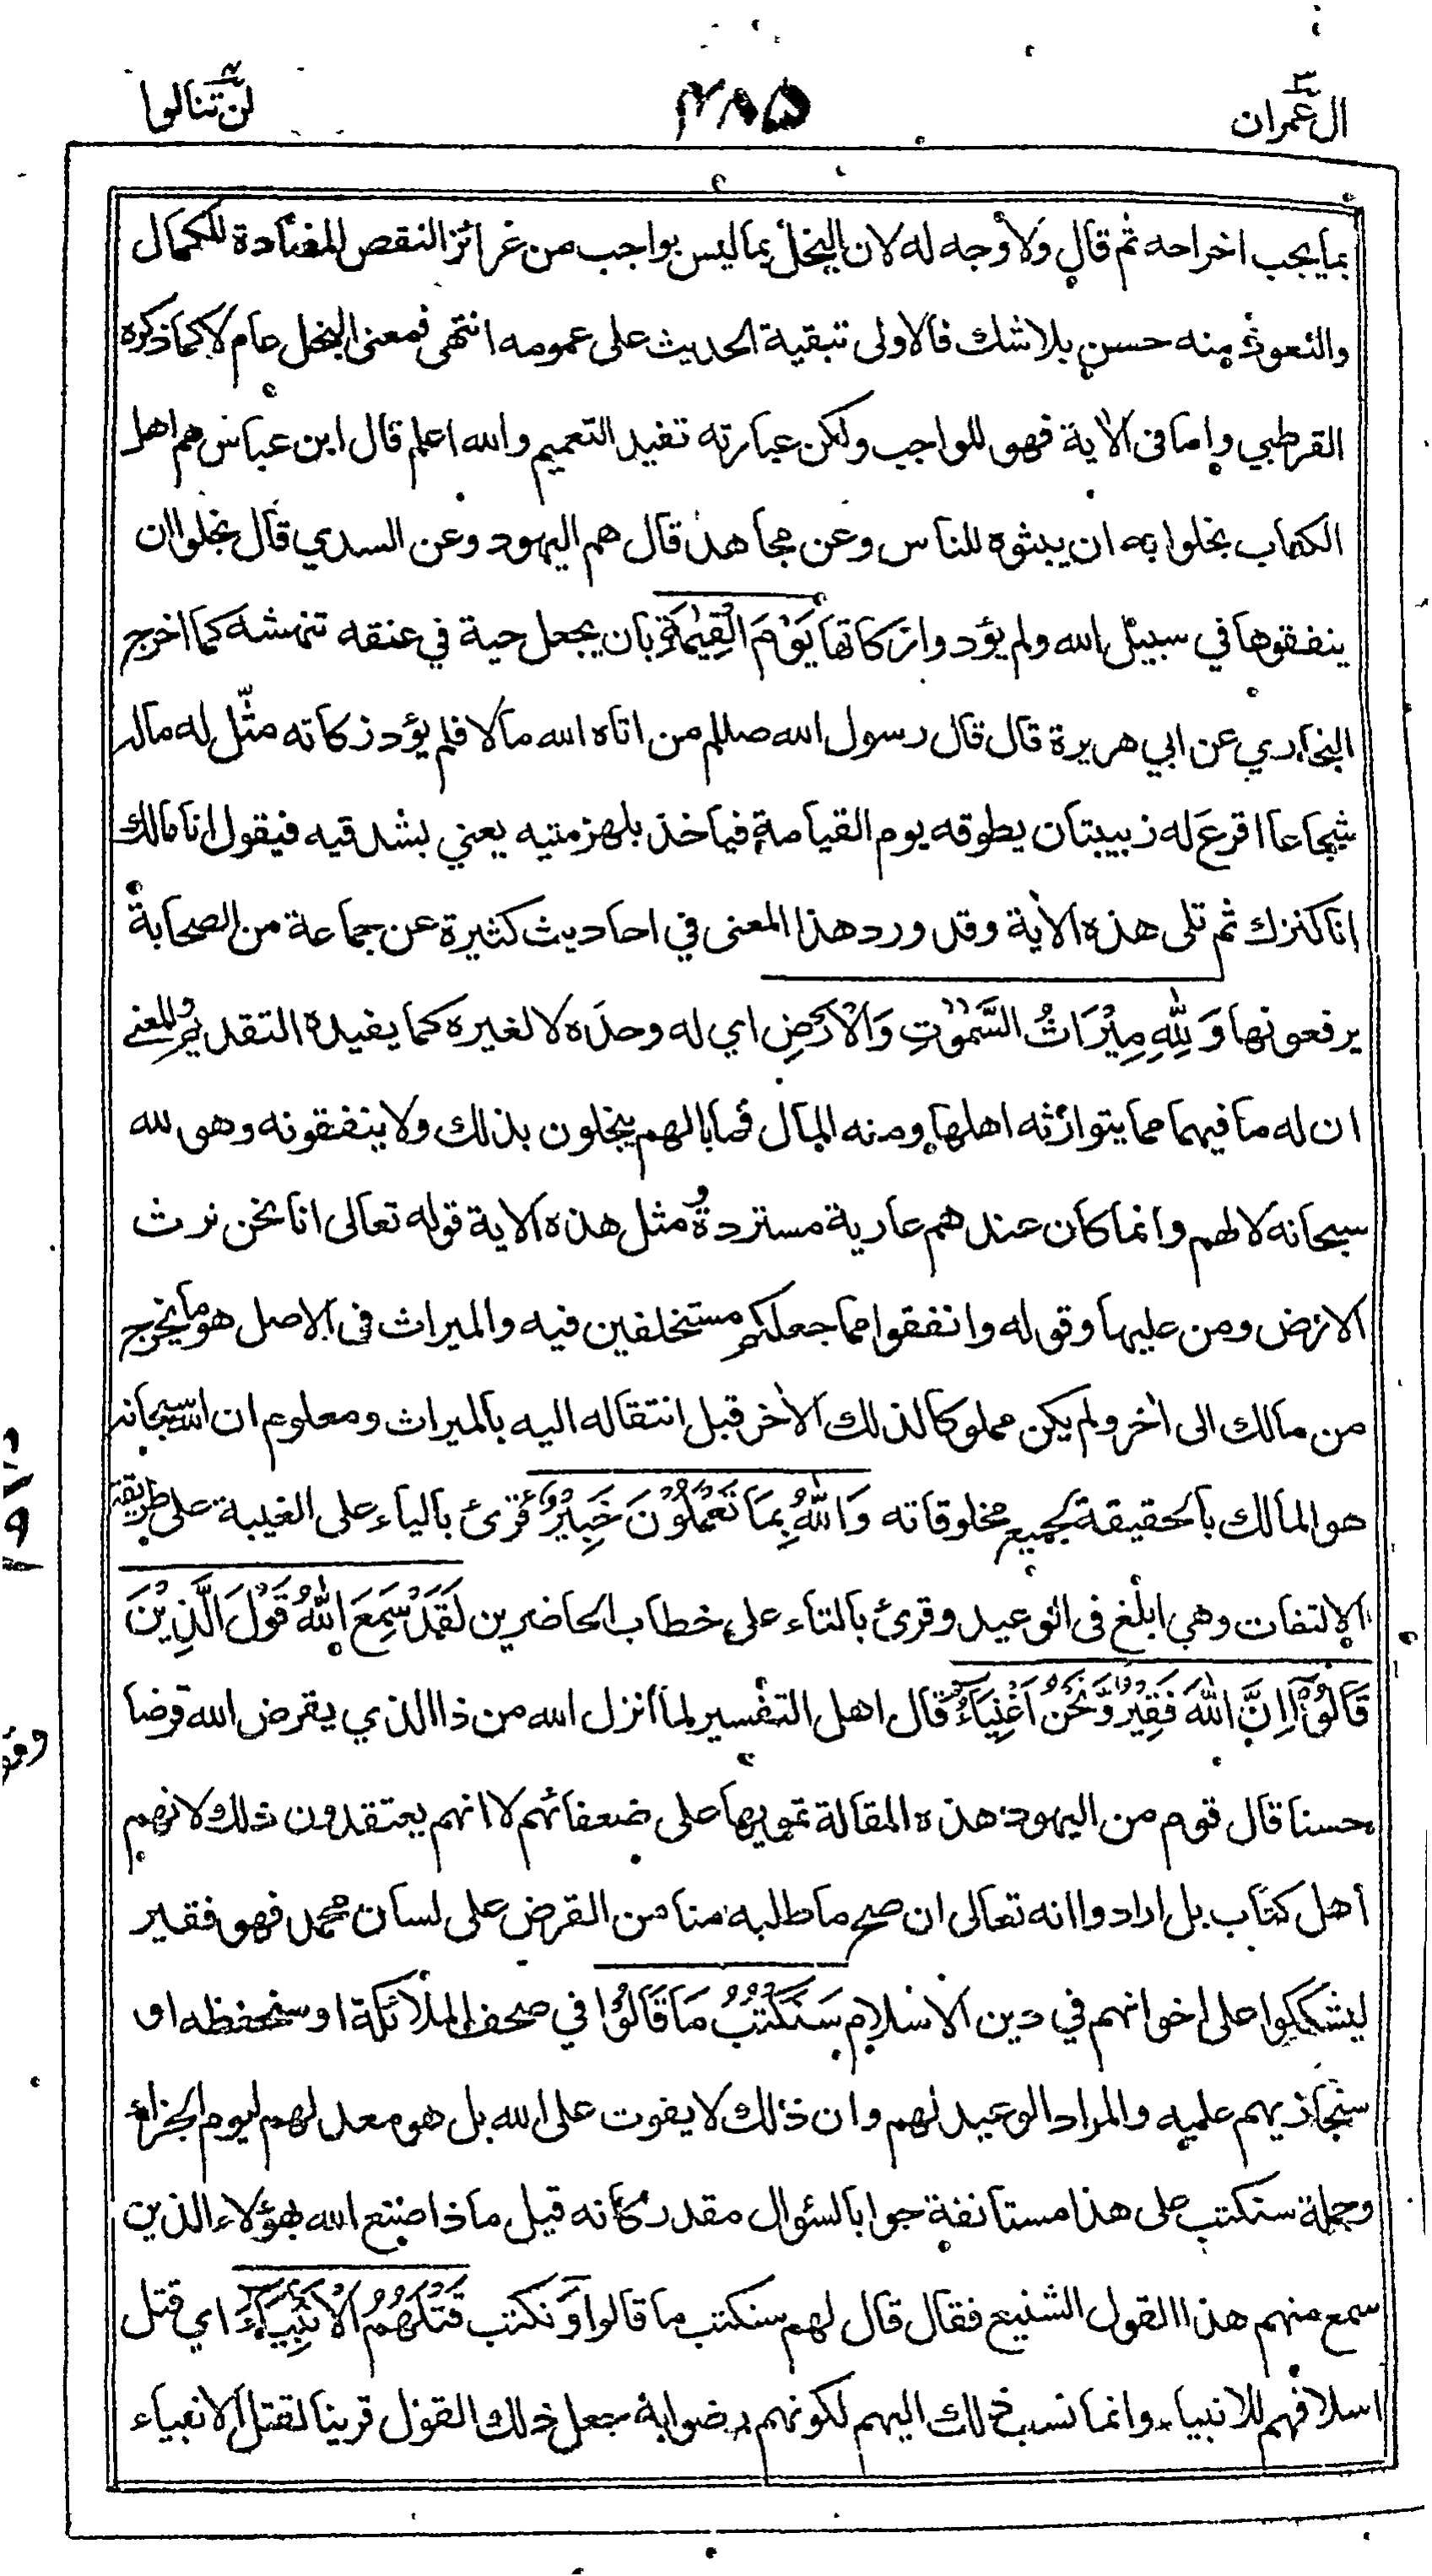 ال عمران ٣
٢٨٥
لن تنالوا ٤
بما يجب اخراجه ثم قال ولا وجه له لان البخل بما ليس بواجب من غرائز النقص المضادة للكمال
والتعوذ منه حسن بلا شك فالاولى تبقية الحديث على عمومه انتهى فمعنى البخل عام لا كما ذكره
القرطبي واما في الاية فهو للواجب ولكن عبارته تفيد التعميم والله اعلم قال ابن عباس هم اهل
الكتاب بخلوا به ان يبثوه للناس وعن مجاهد قال هم اليهود وعن السدي قال بخلوا ان
ينفقوها في سبيل الله ولم يؤدوا زكاتها يَوْمَ الْقِيٰمَةِ بان يجعل حية في عنقه تنهشه كما اخرج
البخاري عن ابي هريرة قال قال رسول الله صللم من اتاه الله مالا فلم يؤد زكاته مثّل له ماله
شجاعا اقرع له زبيبتان يطوقه يوم القيامة فياخذ بلهزمتيه يعني بشدقيه فيقول انا مالك
انا كنزك ثم تلى هذه الاية وقد ورد هذا المعنى في احاديث كثيرة عن جماعة من الصحابة
يرفعونها وَلِلّٰهِ مِيْرَاثُ السَّمٰوٰتِ وَالْاَرْضِ اي له وحده لا لغيره كما يفيده التقديم والمعنى
ان له ما فيهما مما يتوارثه اهلها ومنه المال فما بالهم يبخلون بذلك ولا ينفقونه وهو لله
سبحانه لا لهم وانما كان عندهم عارية مستردة ومثل هذه الاية قوله تعالى انا نحن نرث
الارض ومن عليها وقوله وانفقوا مما جعلكم مستخلفين فيه والميراث في الاصل هو ما يخرج
من مالك الى اخر ولم يكن مملوكا لذلك الاخر قبل انتقاله اليه بالميراث ومعلوم ان الله سبحانه
هو المالك بالحقيقة لجميع مخلوقاته وَاللّٰهُ بِمَا تَعْمَلُوْنَ خَبِيْرٌ قرئ بالياء على الغيبة على طريقة
الالتفات وهي ابلغ في الوعيد وقرئ بالتاء على خطاب الحاضرين لَقَدْ سَمِعَ اللّٰهُ قَوْلَ الَّذِيْنَ
قَالُوْٓا اِنَّ اللّٰهَ فَقِيْرٌ وَّنَحْنُ اَغْنِيَآءُ قال اهل التفسير لما انزل الله من ذا الذي يقرض الله قرضا
حسنا قال قوم من اليهود هذه المقالة تمويها على ضعفائهم لا انهم يعتقدون ذلك لانهم
اهل كتاب بل ارادوا انه تعالى ان صح ما طلبه منا من القرض على لسان محمد فهو فقير
ليشككوا على اخوانهم في دين الاسلام سَنَكْتُبُ مَا قَالُوْا في صحف الملائكة او سنحفظه او
سنجازيهم عليه والمراد الوعيد لهم وان ذلك لا يفوت على الله بل هو معد لهم ليوم الجزاء
وجملة سنكتب على هذا مستانفة جوابا لسؤال مقدر كانه قيل ماذا صنع الله بهؤلاء الذين
سمع منهم هذا القول الشنيع فقال قال لهم سنكتب ما قالوا وَ نكتب قَتْلَهُمُ الْاَنْبِيَآءَ اي قتل
اسلافهم للانبياء وانما نسب ذلك اليهم لكونهم رضوا به جعل ذلك القول قرينا لقتل الانبياء